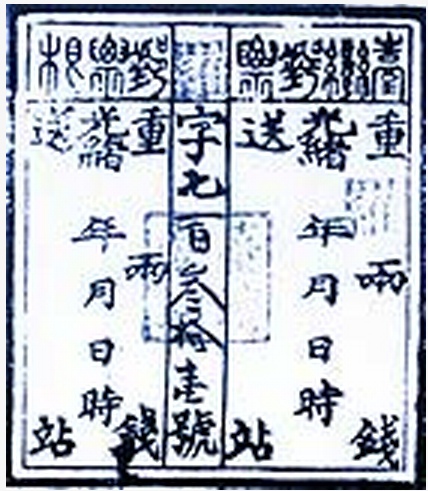 臺灣郵票
重 兩 錢
光緒 年月日時
送 站
字七百叁拾壹號
郵票根
重 兩 錢
光緒 年月日時
送 站